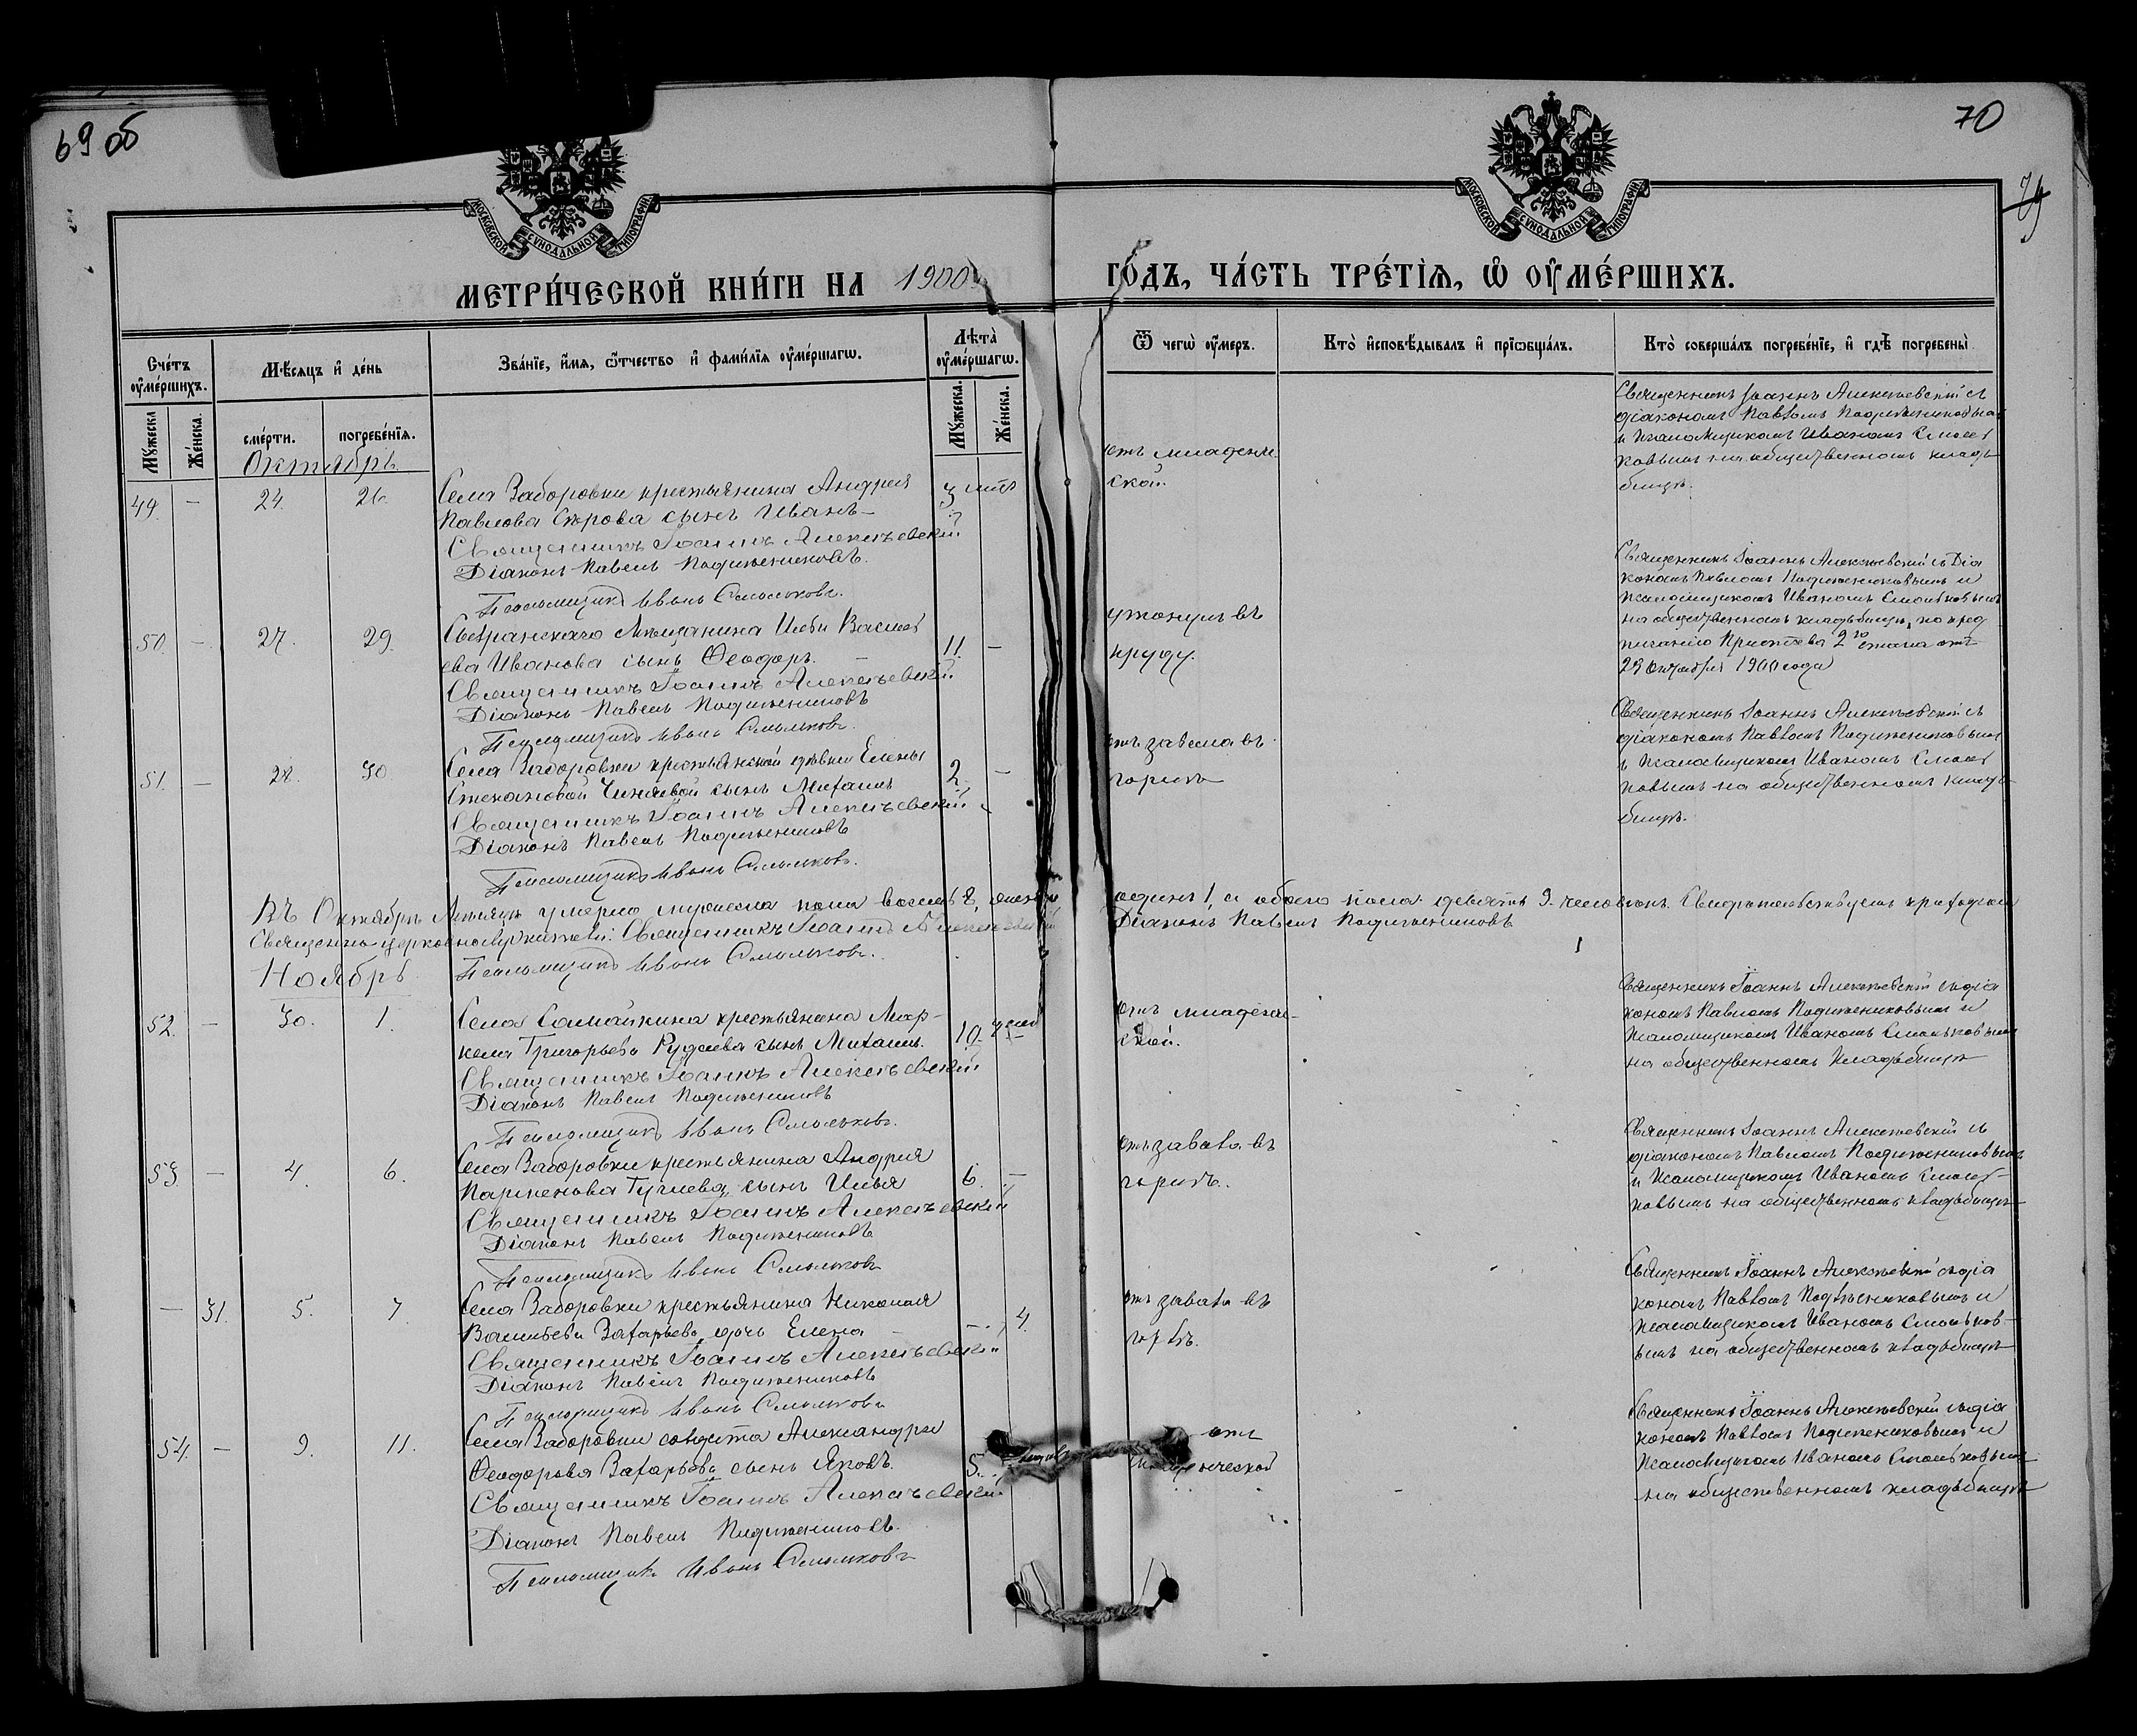 69 об
70
МОСКОВСКОЙ СѴНОДАЛЬНОЙ ТИПОГРАФІИ
МОСКОВСКОЙ СѴНОДАЛЬНОЙ ТИПОГРАФІИ
МЕТРИ́ЧЕСКОЙ КНИ́ГИ НА 1900
ГО́ДЪ, ЧА́СТЬ ТРЕ́ТІѦ, Ѡ ОУМЕ́РШИХЪ.
Сче́тъ оуме́ршихъ.
Мꙋжеска
Же́нска.
Мѣ́сяцъ и де́нь
сме́рти.
погребе́нїя.
Зва́нїе, и́мя, ѻ҆́тчество и фами́лїя оуме́ршагѡ.
Лѣта̀ оуме́ршагѡ.
Мꙋжеска.
Же́нска.
Ѿ чегѡ̀ оу́меръ.
Кто̀ исповѣ́дывалъ и прїѡбща́лъ.
Кто̀ соверша́лъ погребе́нїе, и гдѣ̀ погребены̀
Октябрь
49. — 24. 26.
Села Заборовки крестьянина Андрея
Павлова сынъ Иванъ —
3
Священникъ Іоаннъ Алексѣевскій
Діаконъ Павелъ Подлипенниковъ.
Псаломщикъ Иванъ Смольковъ.
отъ младенче
ской.
Священникъ Іоаннъ Алексѣевскій съ
діакономъ Павломъ
и псаломщикомъ Иваномъ Смоль
ковымъ на общественномъ клад
бищѣ.
50. — 27. 29.
Сызранскаго мѣщанина Василь
ева Иванова сынъ Ѳеодоръ. —
11. —
Священникъ Іоаннъ Алексѣевскій
Діаконъ Павелъ
Псаломщикъ Иванъ Смольковъ.
утонулъ въ
пруду.
Священникъ Іоаннъ Алексѣевскій съ Діа
кономъ Павломъ и
псаломщикомъ Иваномъ Смольковымъ
на общественномъ кладбищѣ, по пред
писанію Пристава 2го стана отъ
29 Октября 1900 года
51. — 28. 30.
Села Заборовки крестьянской дѣвки Елены
Степановой сынъ Михаилъ
2. —
Священникъ Іоаннъ Алексѣевскій
Діаконъ Павелъ
Псаломщикъ Иванъ Смольковъ.
отъ завала въ
горлѣ
Священникъ Іоаннъ Алексѣевскій съ
діакономъ Павломъ
и псаломщикомъ Иваномъ Смоль
ковымъ на общественномъ клад
бищѣ.
Въ Октябрѣ мѣсяцѣ умерло мужеска пола восемь 8, женска одинъ 1, а обоего пола девять 9 человѣкъ. Свидѣтельствуемъ
Священно-церковнослужители: Священникъ Іоаннъ Алексѣевскій Діаконъ Павелъ
Псаломщикъ Иванъ Смольковъ.
Ноябрь
52. — 30. 1.
Села Самайкина крестьянина Мар-
кела Григорьева сынъ Михаилъ.
10
Священникъ Іоаннъ Алексѣевскій
Діаконъ Павелъ
Псаломщикъ Иванъ Смольковъ.
отъ младенче-
ской.
Священникъ Іоаннъ Алексѣевскій съ діа
кономъ Павломъ и
псаломщикомъ Иваномъ Смольковымъ
на общественномъ кладбищѣ
53. — 4. 6.
Села Заборовки крестьянина Андрея
Парменова сынъ Илья
6. —
Священникъ Іоаннъ Алексѣевскій
Діаконъ Павелъ
Псаломщикъ Иванъ Смольковъ
отъ завала въ
горлѣ.
Священникъ Іоаннъ Алексѣевскій съ
діакономъ Павломъ
и псаломщикомъ Иваномъ Смоль-
ковымъ на общественномъ кладбищѣ
— 31. 5. 7.
Села Заборовки крестьянина Николая
Васильева Захарьева дочь Елена
— 4.
Священникъ Іоаннъ Алексѣевскій
Діаконъ Павелъ
Псаломщикъ Иванъ Смольковъ
отъ завала въ
горлѣ.
Священникъ Іоаннъ Алексѣевскій съ діа
кономъ Павломъ и
псаломщикомъ Иваномъ Смольков-
ымъ на общественномъ кладбищѣ
54. — 9. 11.
Села Заборовки солдата Александра
Ѳеодорова Захарьева сынъ Яковъ.
5.
Священникъ Іоаннъ Алексѣевскій
Діаконъ Павелъ
Псаломщикъ Иванъ Смольковъ
отъ
Священникъ Іоаннъ Алексѣевскій съ діа
кономъ Павломъ и
псаломщикомъ Иваномъ Смольковымъ
на общественномъ кладбищѣ